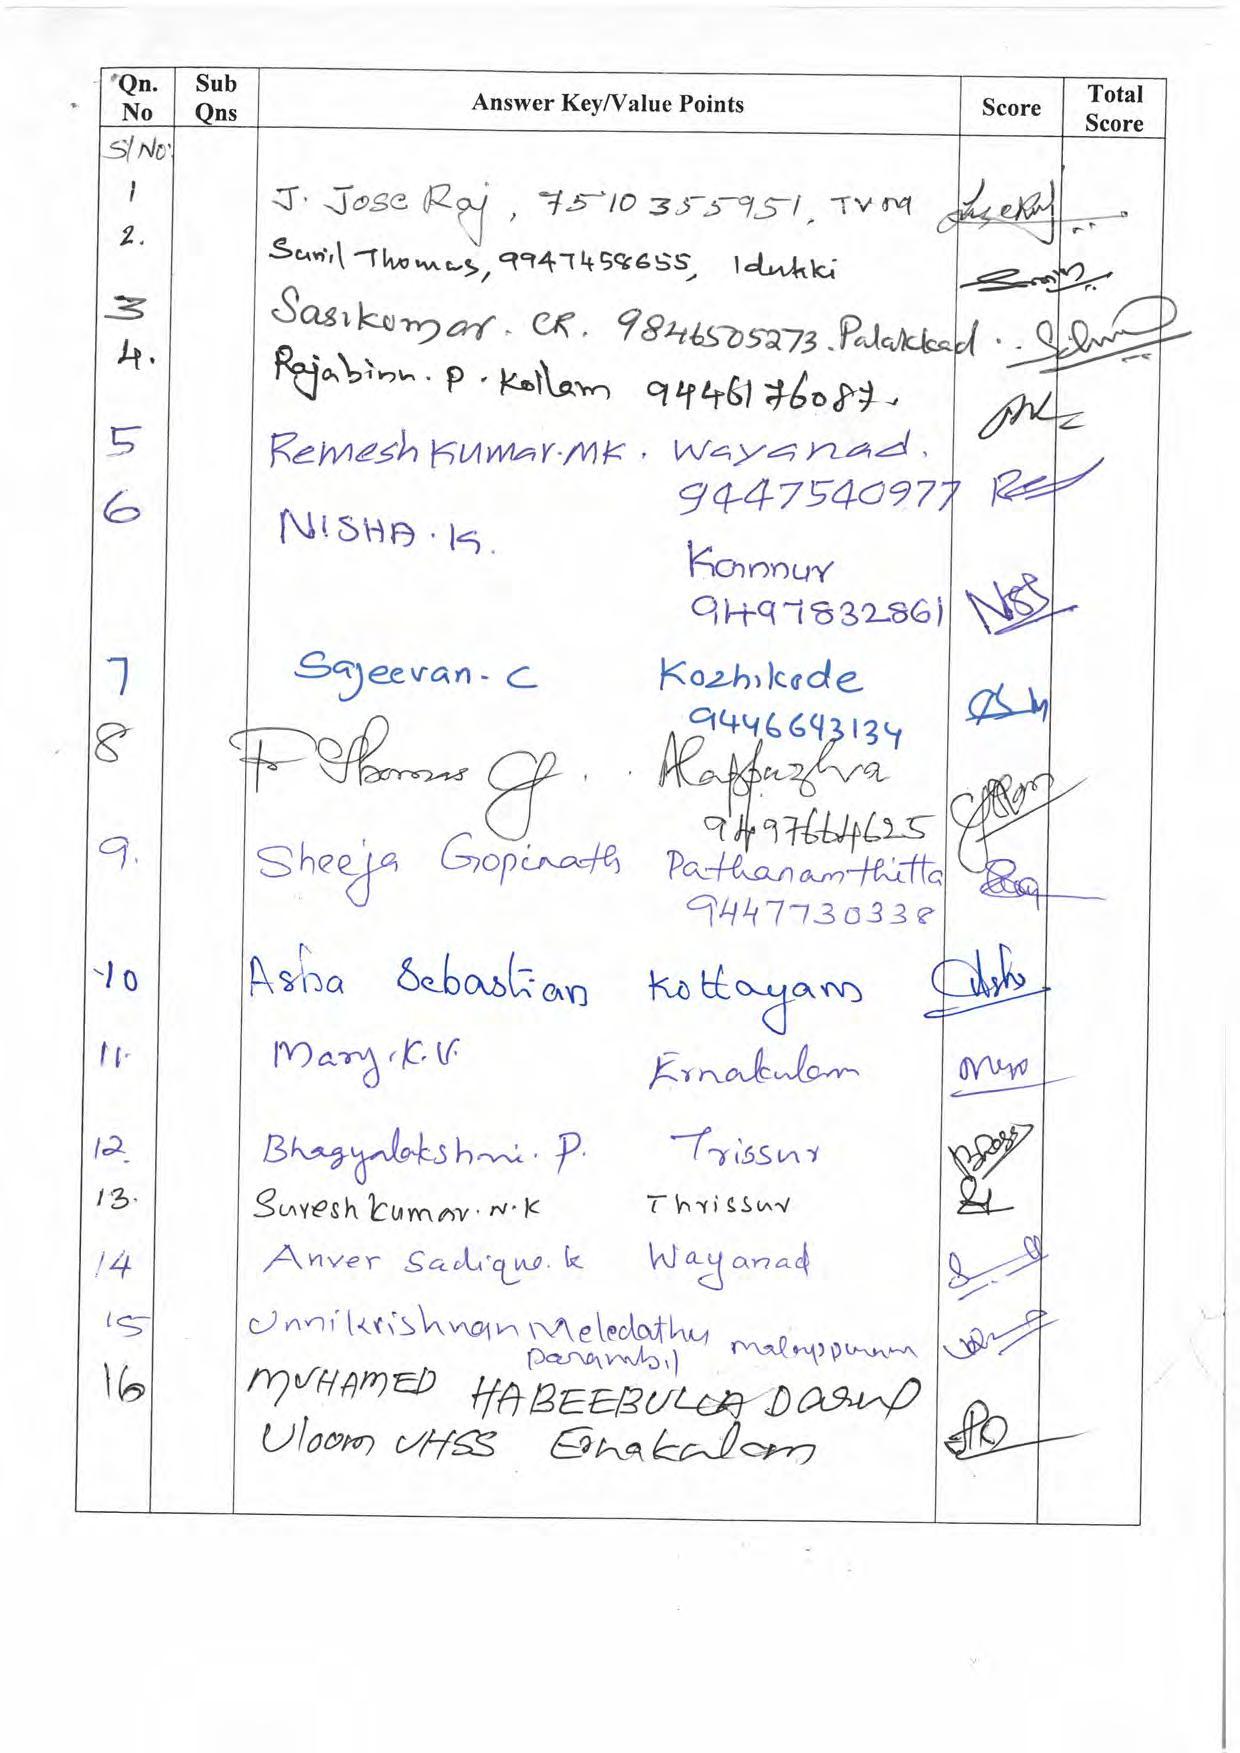 Qn. No Sub Qns Answer Key/Value Points Score Total Score
Sl No:
1 J. Jose Raj, 7510355951, TVM
2. Sunil Thomas, 9947458655, Idukki
3 Sasikumar. CR. 9846505273. Palakkad
4. Rajabinu. P. Kollam 9446176087.
5 Remesh Kumar. MK. Wayanad.
9447540977
6 NISHA. K.
Kannur
9497832861
7 Sajeevan - C Kozhikode
9446643134
8 Fr Thomas Alappuzha
9497664625
9. Sheeja Gopinath Pathanamthitta
9447730338
10 Asha Sebastian Kottayam
11. Mary. K. V. Ernakulam
12. Bhagyalakshmi. P. Trissur
13. Suresh kumar. N. K Thrissur
14 Anver Sadique. k Wayanad
15 Unnikrishnan Meledathu malappuram
parambil
16 MUHAMED HABEEBULLA Darul
Uloom VHSS Ernakulam